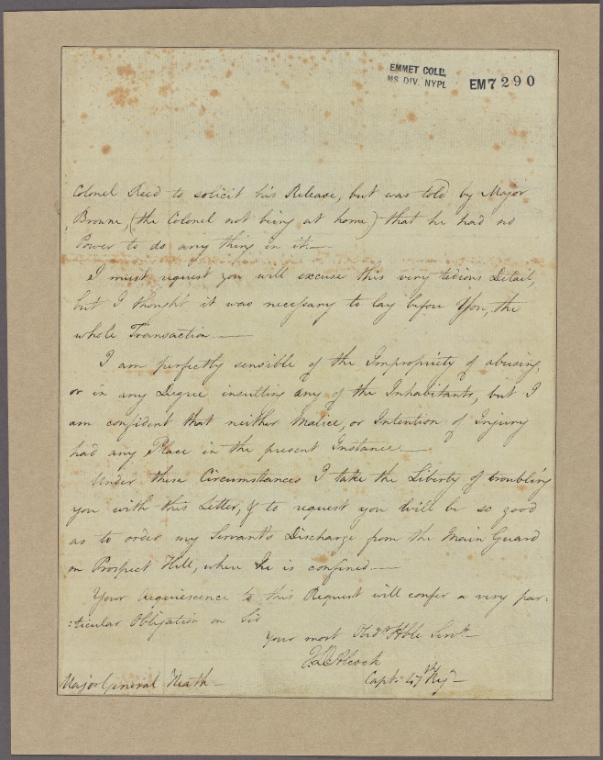 EMMET COLL.
MS DIV. NYPL
EM7290
Colonel Reed to solicit his Release, but was told by Major
Browne, (the Colonel not being at home) that he had no
Power to do any thing in it.—
I must request you will excuse this very tedious Detail,
but I thought it was necessary to lay before You, the
whole Transaction.—
I am perfectly sensible of the Impropriety of abusing,
or in any Degree insulting any of the Inhabitants, but I
am confident that neither Malice, or Intention of Injury
had any Place in the present Instance.—
Under these Circumstances I take the Liberty of troubling
you with this Letter, & to request you will be so good
as to order my Servant's Discharge from the Main Guard
on Prospect Hill, where he is confined.—
Your acquiescence to this Request will confer a very par:
:ticular Obligation on Sir
Your most Obdt. Hble Servt.
Alcock
Capt. 47th Regt.
Major General Heath—